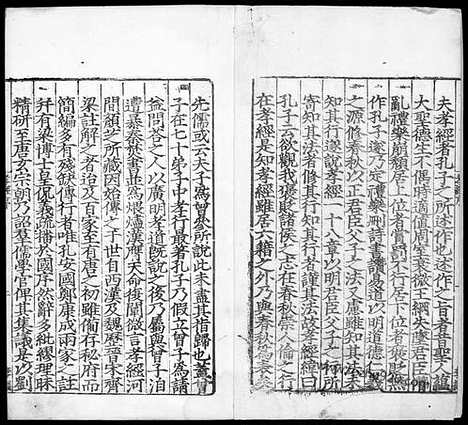 夫孝經者孔子之所述作也述作之旨者昔聖人蘊
大聖德生不偶時適值周室衰微王綱失墜君臣僭
亂禮樂崩頹居上位者賞罰不行居下位者褒貶無
作孔子遂乃定禮樂刪詩書讚易道以明道德仁義
之源修春秋以正君臣父子之法又慮雖知其法未
知其行遂說孝經一十八章以明君臣父子之行所
寄知其法者修其行知其行者謹其法故孝經緯曰
孔子云欲觀我褒貶諸侯之志在春秋崇人倫之行
在孝經是知孝經雖居六籍之外乃與春秋為表矣
先儒或云夫子為曾參所說此未盡其指歸也蓋曾
子在七十弟子中孝行最著孔子乃假立曾子為請
益問荅之人以廣明孝道既說之後乃屬與曾子洎
遭暴秦焚書並為煨燼漢膺天命復闡微言孝經河
間顏芝所藏因始傳之于世自西漢及魏歷晉宋齊
梁註解之者迨及百家至有唐之初雖備存秘府而
簡編多有殘缺傳行者唯孔安國鄭康成兩家之註
并有梁博士皇侃義疏播於國序然辭多紕繆理昧
精研至唐玄宗朝乃詔羣儒學官俾其集議是以劉